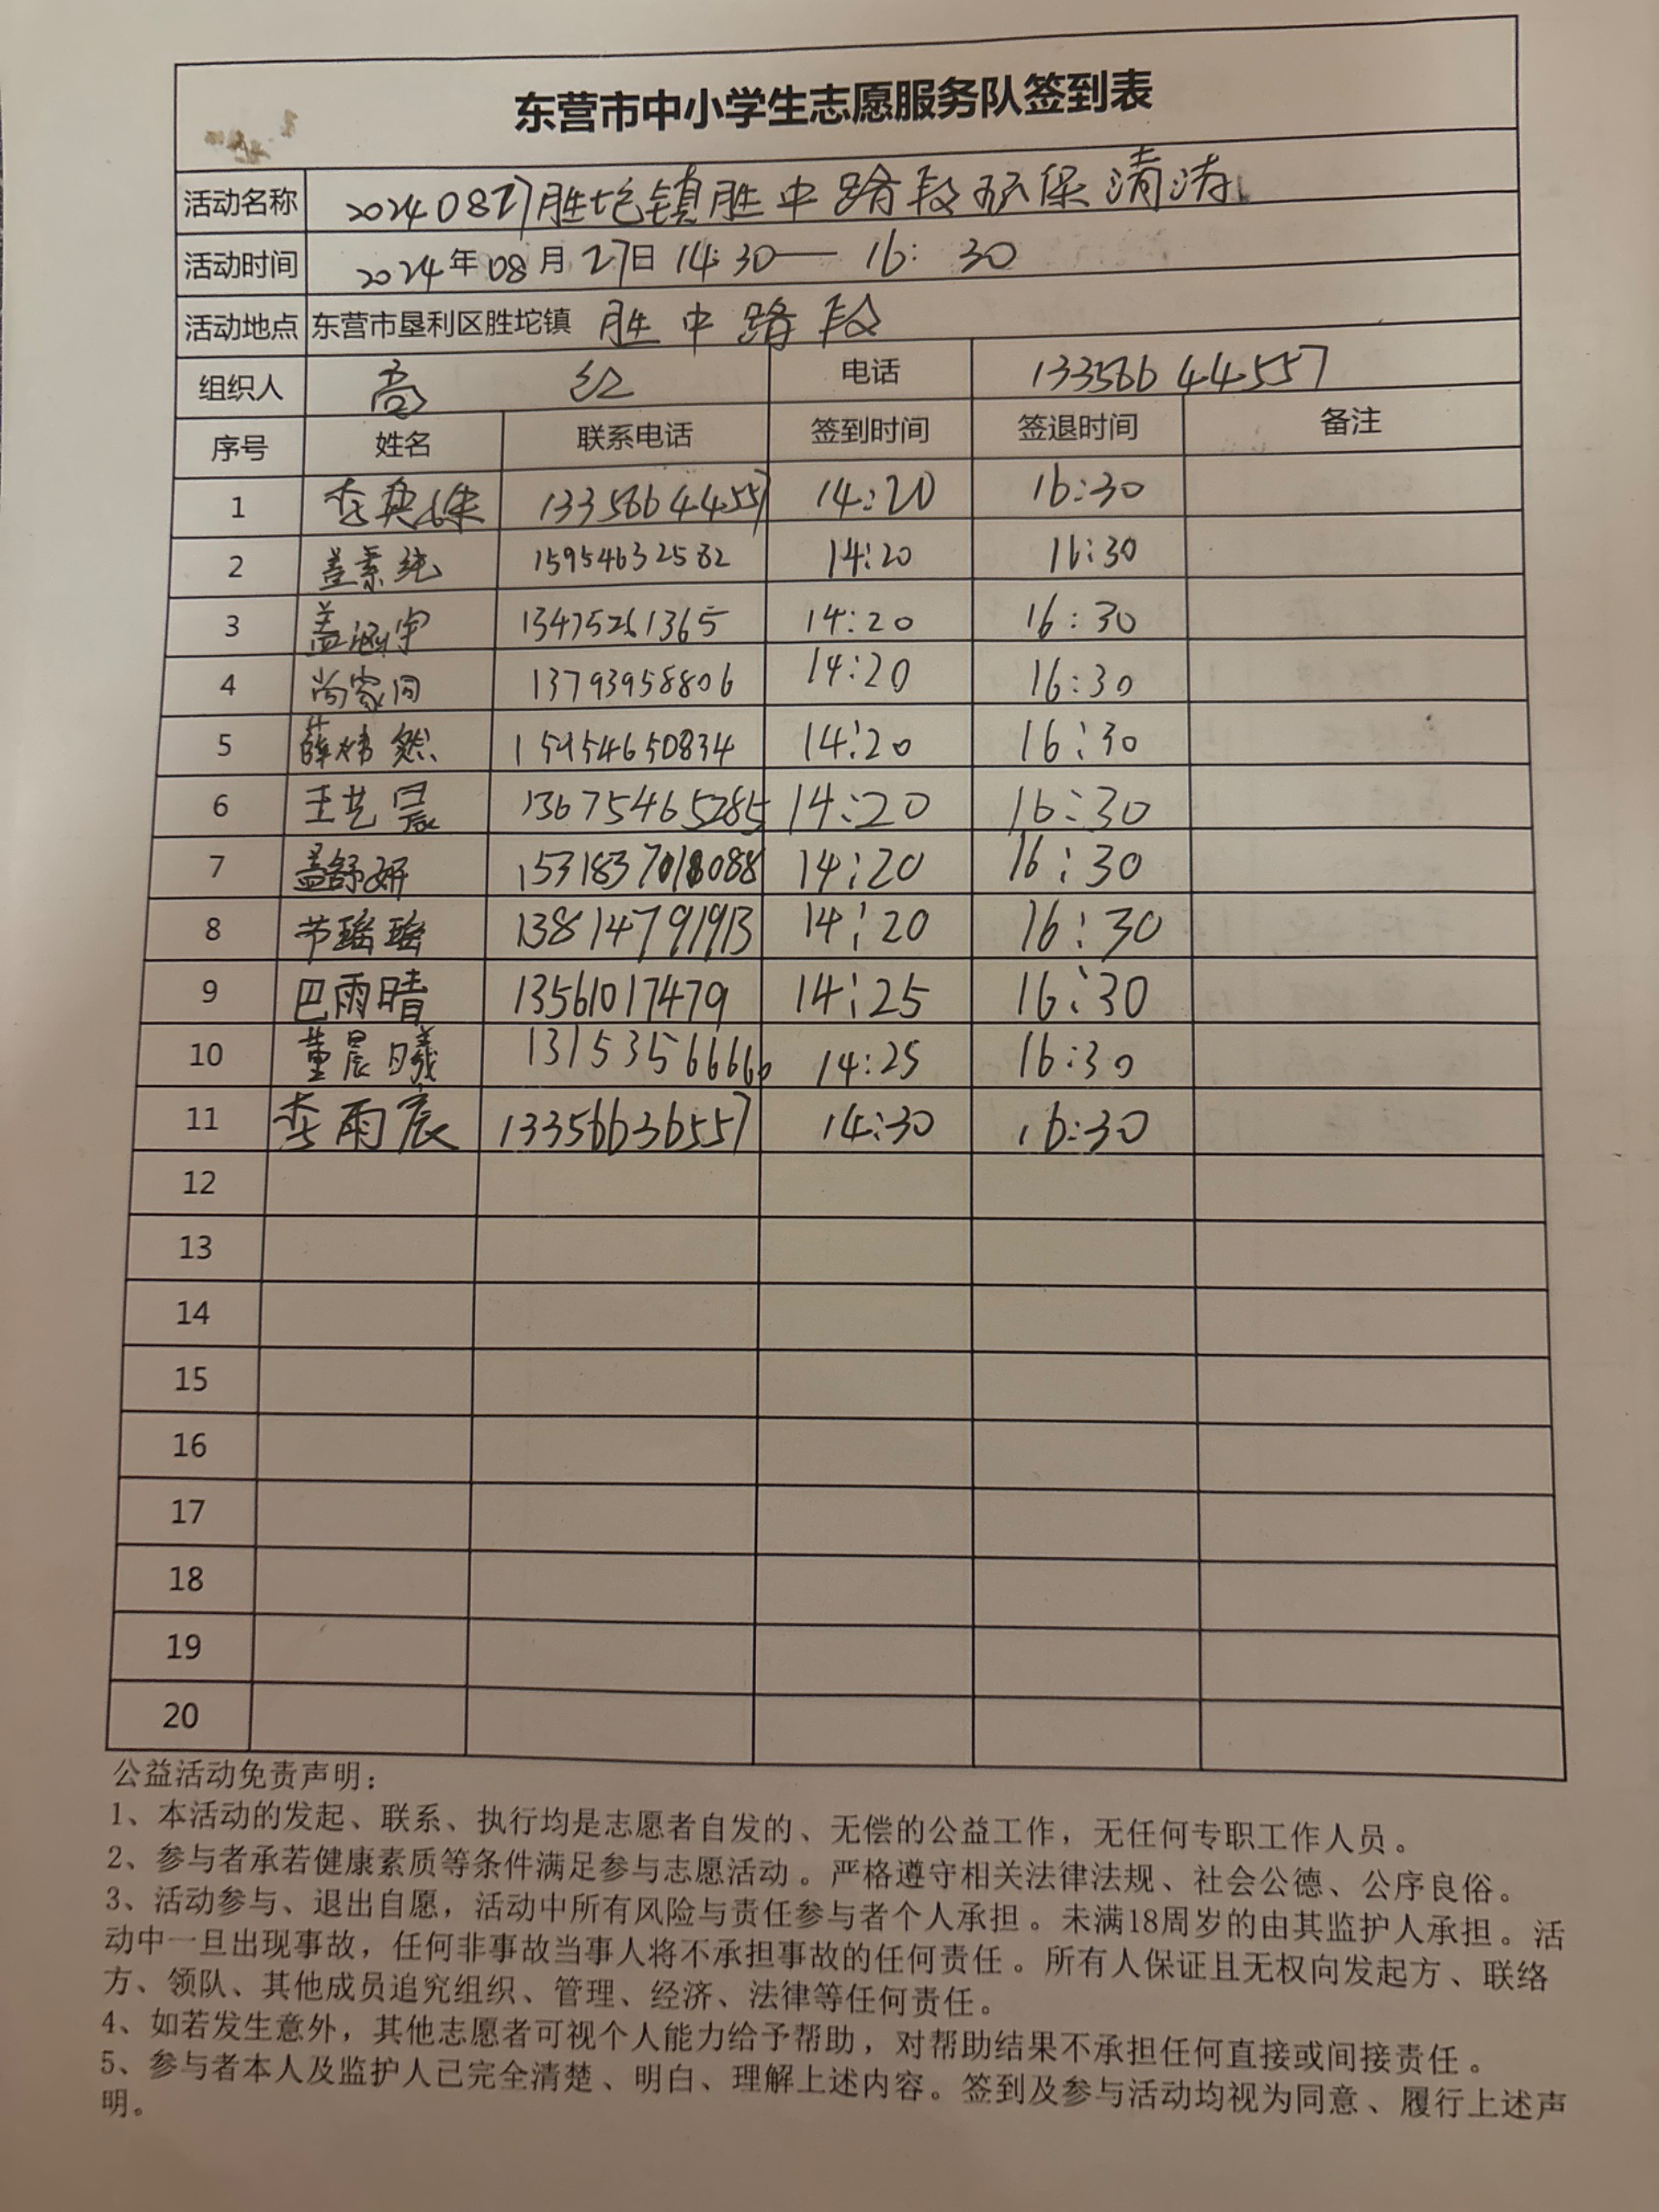 东营市中小学生志愿服务队签到表
活动名称 20240827胜坨镇胜中路段环保清洁
活动时间 2024年08月27日 14:30— 16:30
活动地点 东营市垦利区胜坨镇 胜中路段
组织人 高 红 电话 13356644557
序号 姓名 联系电话 签到时间 签退时间 备注
1 李奕 13356644557 14:20 16:30
2 盖素纯 15954632582 14:20 16:30
3 盖涵宇 13475261365 14:20 16:30
4 尚家同 13793958806 14:20 16:30
5 薛炜然 15954650834 14:20 16:30
6 王艺晨 13675465285 14:20 16:30
7 盖舒妍 14:20 16:30
8 节瑶瑶 13814791913 14:20 16:30
9 巴雨晴 13561017479 14:25 16:30
10 董晨曦 13153566660 14:25 16:30
11 李雨宸 13356636557 14:30 16:30
12
13
14
15
16
17
18
19
20
公益活动免责声明：
1、本活动的发起、联系、执行均是志愿者自发的、无偿的公益工作，无任何专职工作人员。
2、参与者承若健康素质等条件满足参与志愿活动。严格遵守相关法律法规、社会公德、公序良俗。
3、活动参与、退出自愿，活动中所有风险与责任参与者个人承担。未满18周岁的由其监护人承担。活
动中一旦出现事故，任何非事故当事人将不承担事故的任何责任。所有人保证且无权向发起方、联络
方、领队、其他成员追究组织、管理、经济、法律等任何责任。
4、如若发生意外，其他志愿者可视个人能力给予帮助，对帮助结果不承担任何直接或间接责任。
5、参与者本人及监护人已完全清楚、明白、理解上述内容。签到及参与活动均视为同意、履行上述声
明。